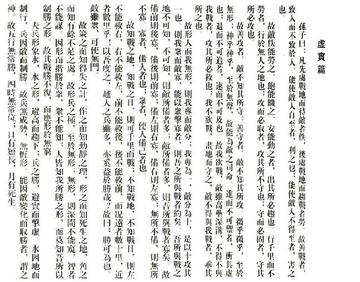 虛實篇
孫子曰：凡先處戰地而待敵者佚，後處戰地而趨戰者勞。故善戰者，
致人而不致於人。能使敵人自至者，利之也；能使敵人不得至者，害之
也。
故敵佚能勞之，飽能饑之，安能動之者，出其所必趨也。行千里而不
勞者，行於無人之地也。攻而必取者，攻其所不守也。守而必固者，守其
所必攻也。
故善攻者，敵不知其所守；善守者，敵不知其所攻。微乎微乎，至於
無形；神乎神乎，至於無聲，故能為敵之司命。進而不可禦者，衝其虛
也；退而不可追者，速而不可及也。故我欲戰，敵雖高壘深溝，不得不與
我戰者，攻其所必救也；我不欲戰，畫地而守之，敵不得與我戰者，乖其
所之也。
故形人而我無形，則我專而敵分；我專為一，敵分為十，是以十攻其
一也，則我眾敵寡。能以眾擊寡者，則吾之所與戰者約矣。吾所與戰之
地不可知，不可知，則敵所備者多，敵所備者多，則吾所與戰者寡矣。故備
前則後寡，備後則前寡，備左則右寡，備右則左寡，無所不備，則無所不
寡。寡者，備人者也；眾者，使人備己者也。
故知戰之地，知戰之日，則可千里而會戰；不知戰地，不知戰日，則左
不能救右，右不能救左，前不能救後，後不能救前，而況遠者數十里，近
者數里乎！以吾度之，越人之兵雖多，亦奚益於勝哉！故曰：勝可為也。
敵雖眾，可使無鬥。
故策之而知得失之計，作之而知動靜之理，形之而知死生之地，角之
而知有餘不足之處。故形兵之極，至於無形；無形，則深間不能窺，智者
不能謀。因形而措勝於眾，眾不能知；人皆知我所勝之形，而莫知吾所以
制勝之形。故其戰勝不復，而應形於無窮。
夫兵形象水，水之形，避高而趨下；兵之勝，避實而擊虛。水因地而
制行，兵因敵而制勝。故兵無成勢，無恆形，能因敵變化而取勝者，謂之
神。故五行無常勝，四時無常位，日有短長，月有死生。